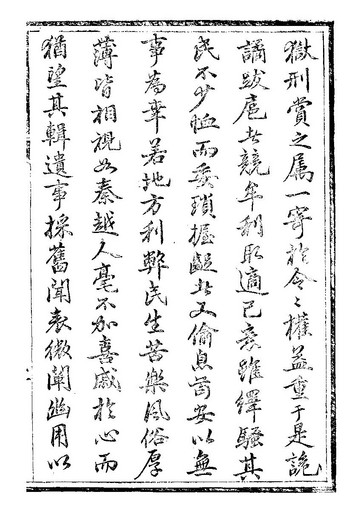 獄刑賞之属一寄於令〻權益重于是詭
譎跋扈者競牟利取適己衷雖繹騷其
民不少恤而委瑣握齪者又偷息苟安以無
事為幸若地方利弊民生苦樂風俗厚
薄皆相視如秦越人毫不加喜戚於心而
猶望其輯遺事採舊聞表微闡幽用以